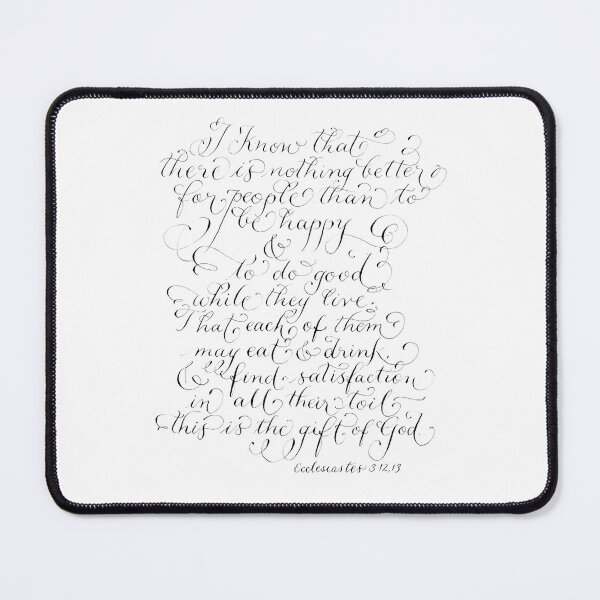 I know that
there is nothing better
for people than to
be happy
&
to do good
while they live.
That each of them
may eat & drink
& find satisfaction
in all their toil
this is the gift of God
Ecclesiastes 3 12,13